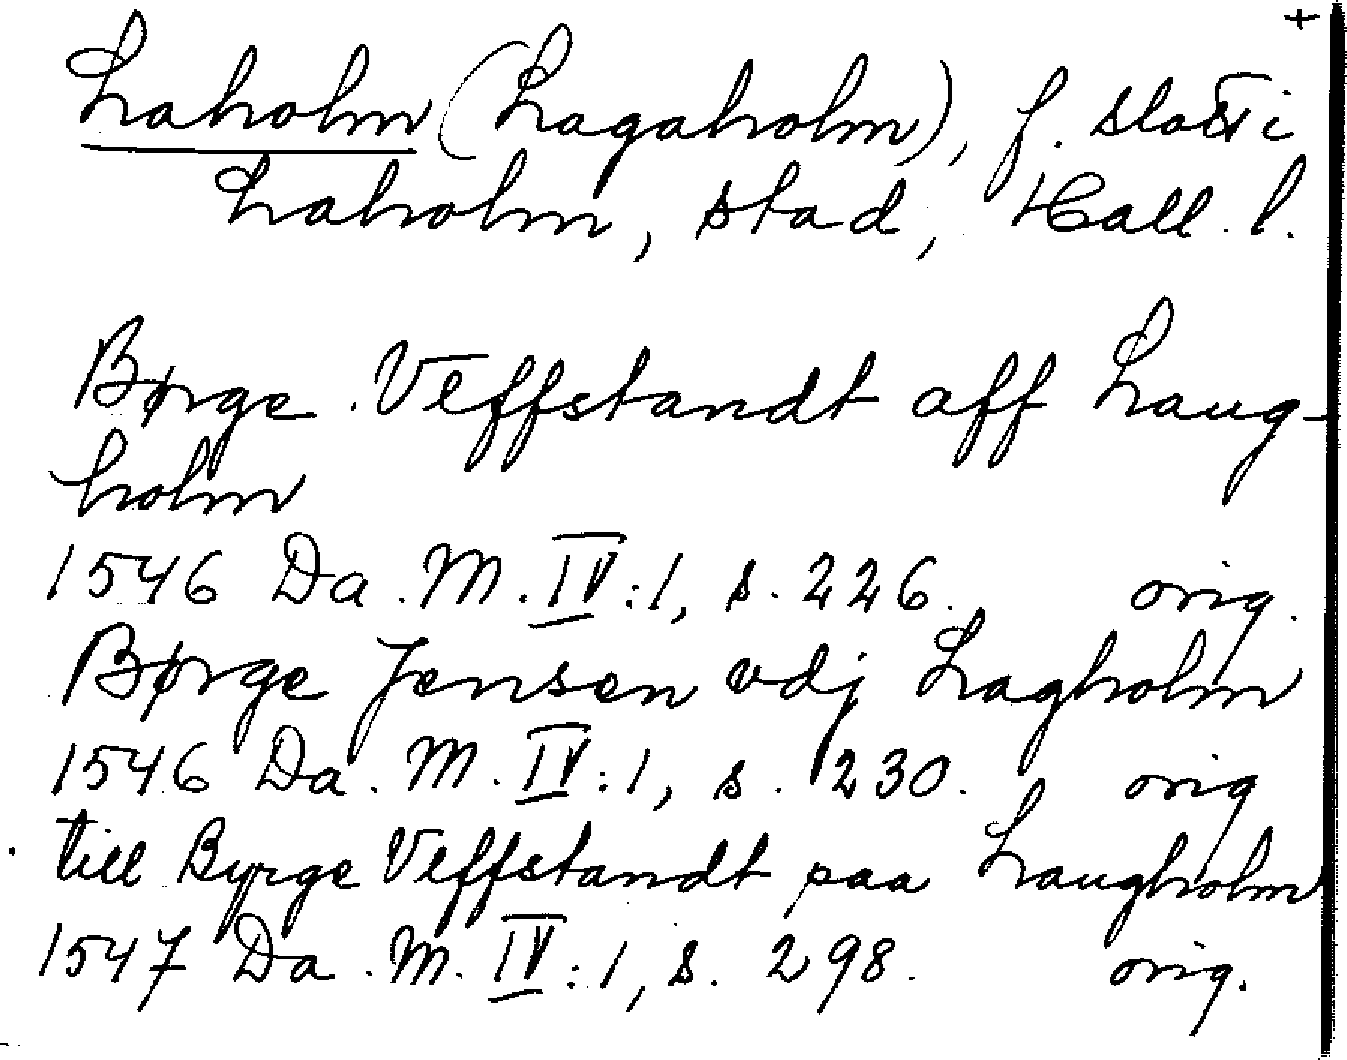 +
Laholm (Lagaholm), f. slott i
Laholm, stad, Hall. l.
Børge Vlffstandt aff Laug-
holm
1546 Da. M. IV:1, s. 226. orig.
Børge Jensen vdj Lagholm
1546 Da. M. IV:1, s. 230. orig
till Byrge Vlffstandt paa Laugholm
1547 Da. M. IV:1, s. 298. orig.